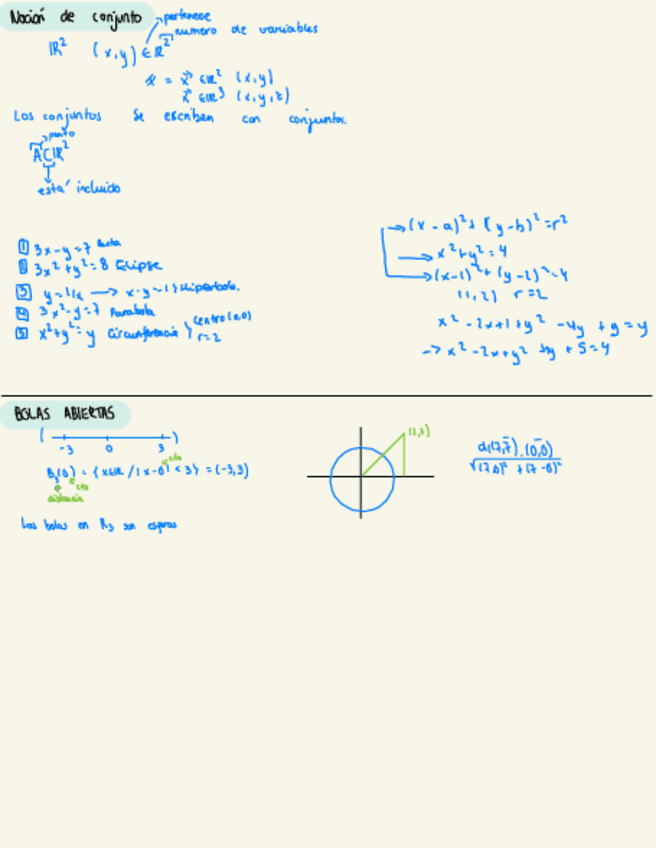 Noción de conjunto
pertenece
numero de variables
ℝ² (x,y) ∈ ℝ²
x⃗ ∈ ℝ² (x,y)
x⃗ ∈ ℝ³ (x,y,z)
Los conjuntos se escriben con conjuntos.
punto
A ⊂ ℝ²
está incluido
1 3x-y=7 Recta
2 3x²+y²=8 Elipse
3 y=1/x → x·y=1 } Hiperbola.
4 3x²-y=7 Parabola
5 x²+y²=4 Circunferencia } centro (0,0)
r=2
→ (x-a)²+(y-b)²=r²
→ x²+y²=4
→ (x-1)²+(y-2)²=4
(1,2) r=2
x²-2x+1+y²-4y+4=4
→ x²-2x+y²-4y+5=4
BOLAS ABIERTAS
( )
-3 0 3
B₃(0) = {x∈ℝ / |x-0|<3} = (-3,3)
cto
cto
distancia
Las bolas en R₃ son esferas
(7,7)
d(7,7),(0,0)
√(7-0)²+(7-0)²